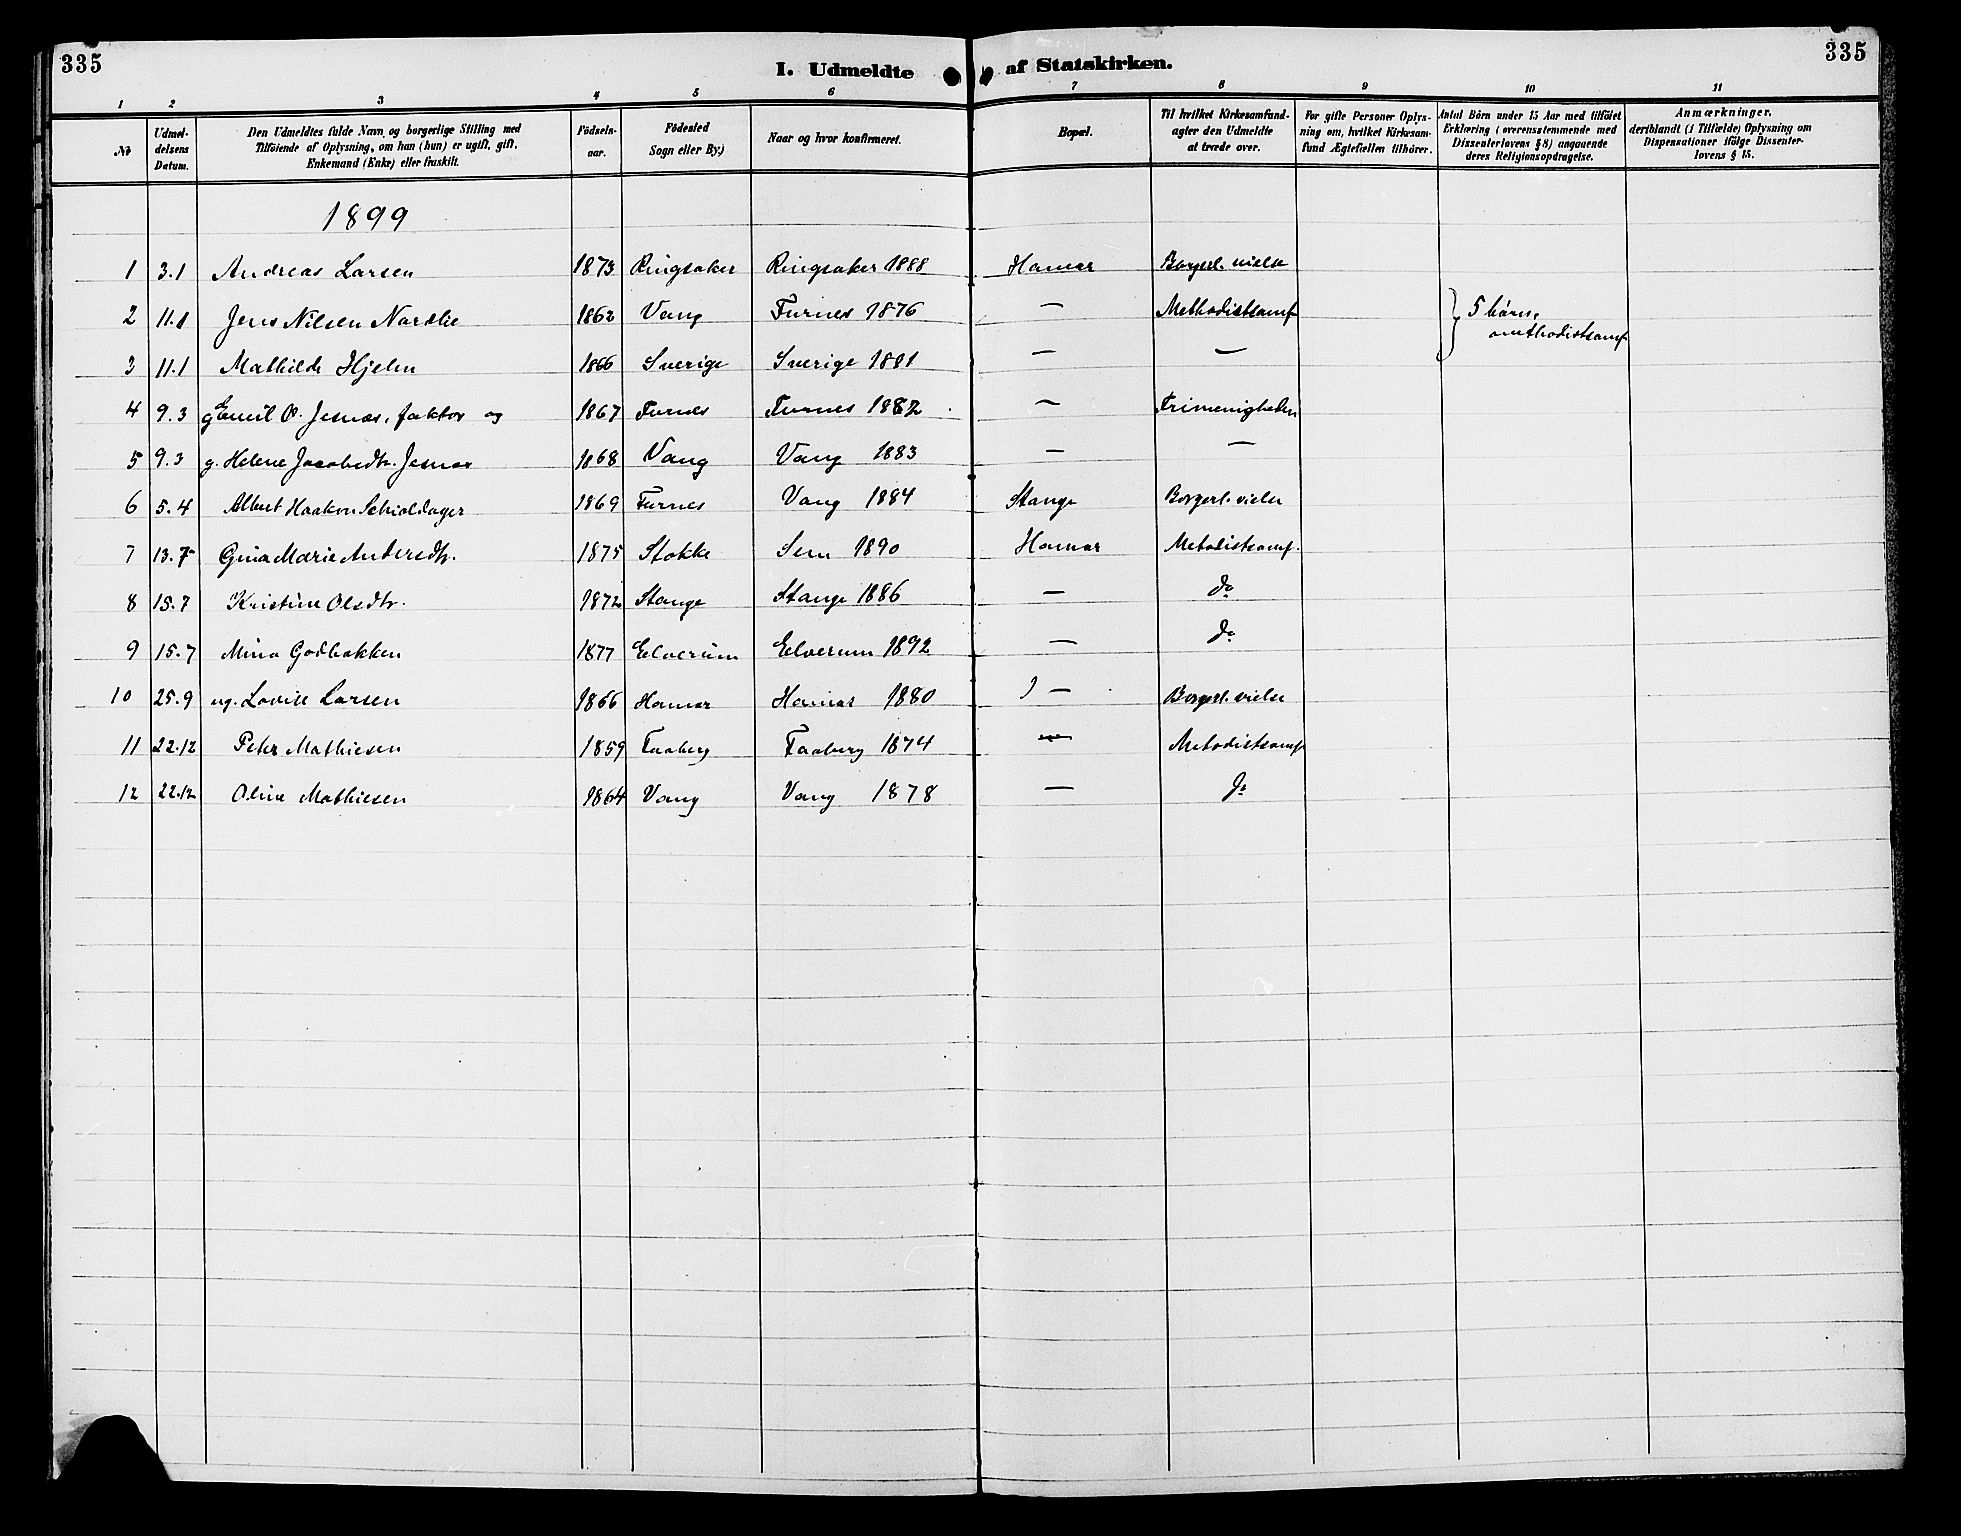 335
I. Udmeldte af Statskirken.
335
1 2 3 4 5 6 7 8 9 10 11
№
Udmel-
delsens
Datum.
Den Udmeldtes fulde Navn og borgerlige Stilling med
Tilføiende af Oplysning, om han (hun) er ugift, gift,
Enkemand (Enke) eller fraskilt.
Fødsels-
aar.
Fødested
Sogn eller By.)
Naar og hvor konfirmeret.
Bopæl.
Til hvilket Kirkesamfund-
agter den Udmeldte
at træde over.
For gifte Personer Oplys-
ning om, hvilket Kirkesam-
fund Ægtefællen tilhører.
Antal Börn under 15 Aar med tilföiet
Erklæring (overensstemmende med
Dissenterlovens § 8) angaaende
deres Religionsopdragelse.
Anmærkninger,
deriblandt (i Tilfælde) Oplysning om
Dispensationer ifölge Dissenter-
lovens § 15.
1899
1 3.1 Andreas Larsen 1873 Ringsaker Ringsaker 1888 Hamar Borgerl. vielse
2 11.1 Jens Nilsen Nordlie 1862 Vang Furnes 1876 — Methodistsamf } 5 børn,
methodistsamf.
3 11.1 Mathilde Hjelm 1866 Sverige Sverige 1881 — —
4 9.3 g. Emil O. Jesnæs, faktor og 1867 Furnes Furnes 1882 — Frimenigheden
5 9.3 g. Helene Jacobsdtr. Jesnæs 1868 Vang Vang 1883 — —
6 5.4 Albert Haakon Schioldager 1869 Furnes Vang 1884 Stange Borgerl. vielse
7 13.7 Gina Marie Andersdtr. 1875 Stokke Sem 1890 Hamar Metodistsamf.
8 15.7 Kristine Olsdtr. 1872 Stange Stange 1886 — do
9 15.7 Mina Godbakken 1877 Elverum Elverum 1892 — do
10 25.9 ug. Lovise Larsen 1866 Hamar Hamar 1880 — Borgerl. vielse
11 22.12 Peter Mathiesen 1859 Faaberg Faaberg 1874 — Metodistsamf
12 22.12 Oline Mathiesen 1864 Vang Vang 1878 — do